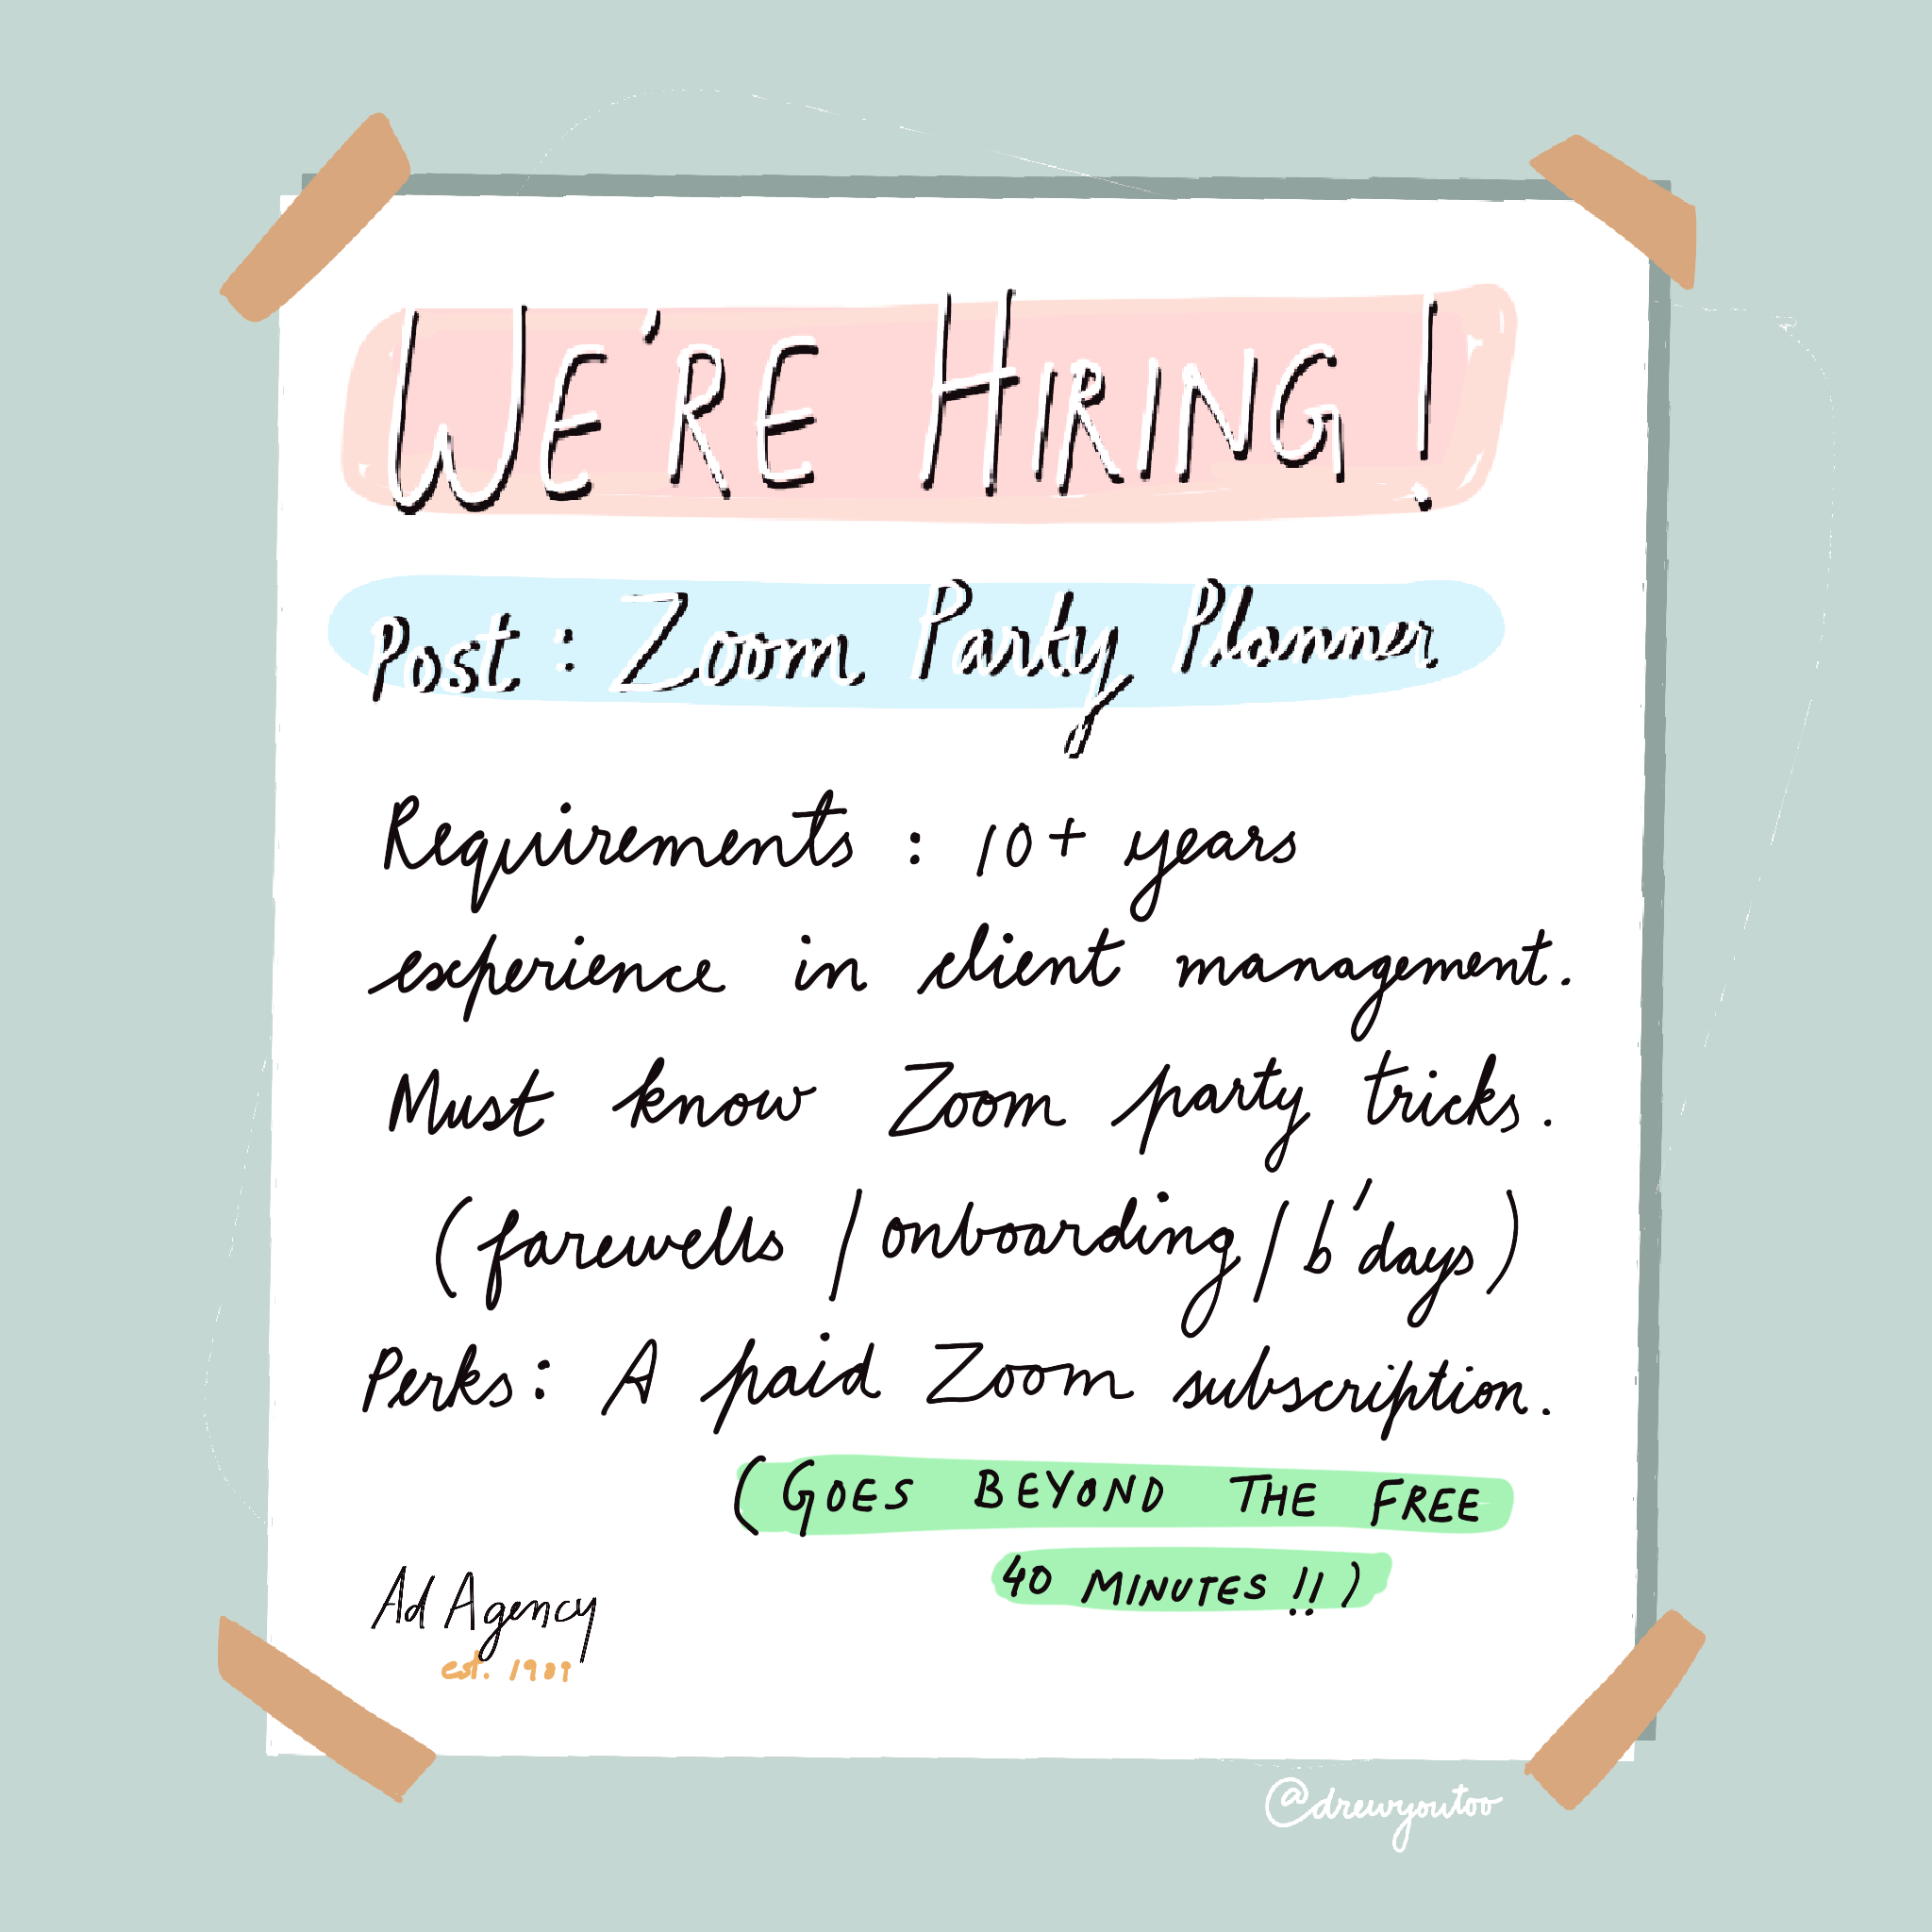 WE'RE HIRING!
Post: Zoom Party Planner
Requirements: 10+ years
experience in client management.
Must know Zoom party tricks.
(farewells/onboarding/b'days)
Perks: A paid Zoom subscription.
(GOES BEYOND THE FREE
40 MINUTES!!)
Ad Agency
est. 1989
@drewyoutoo